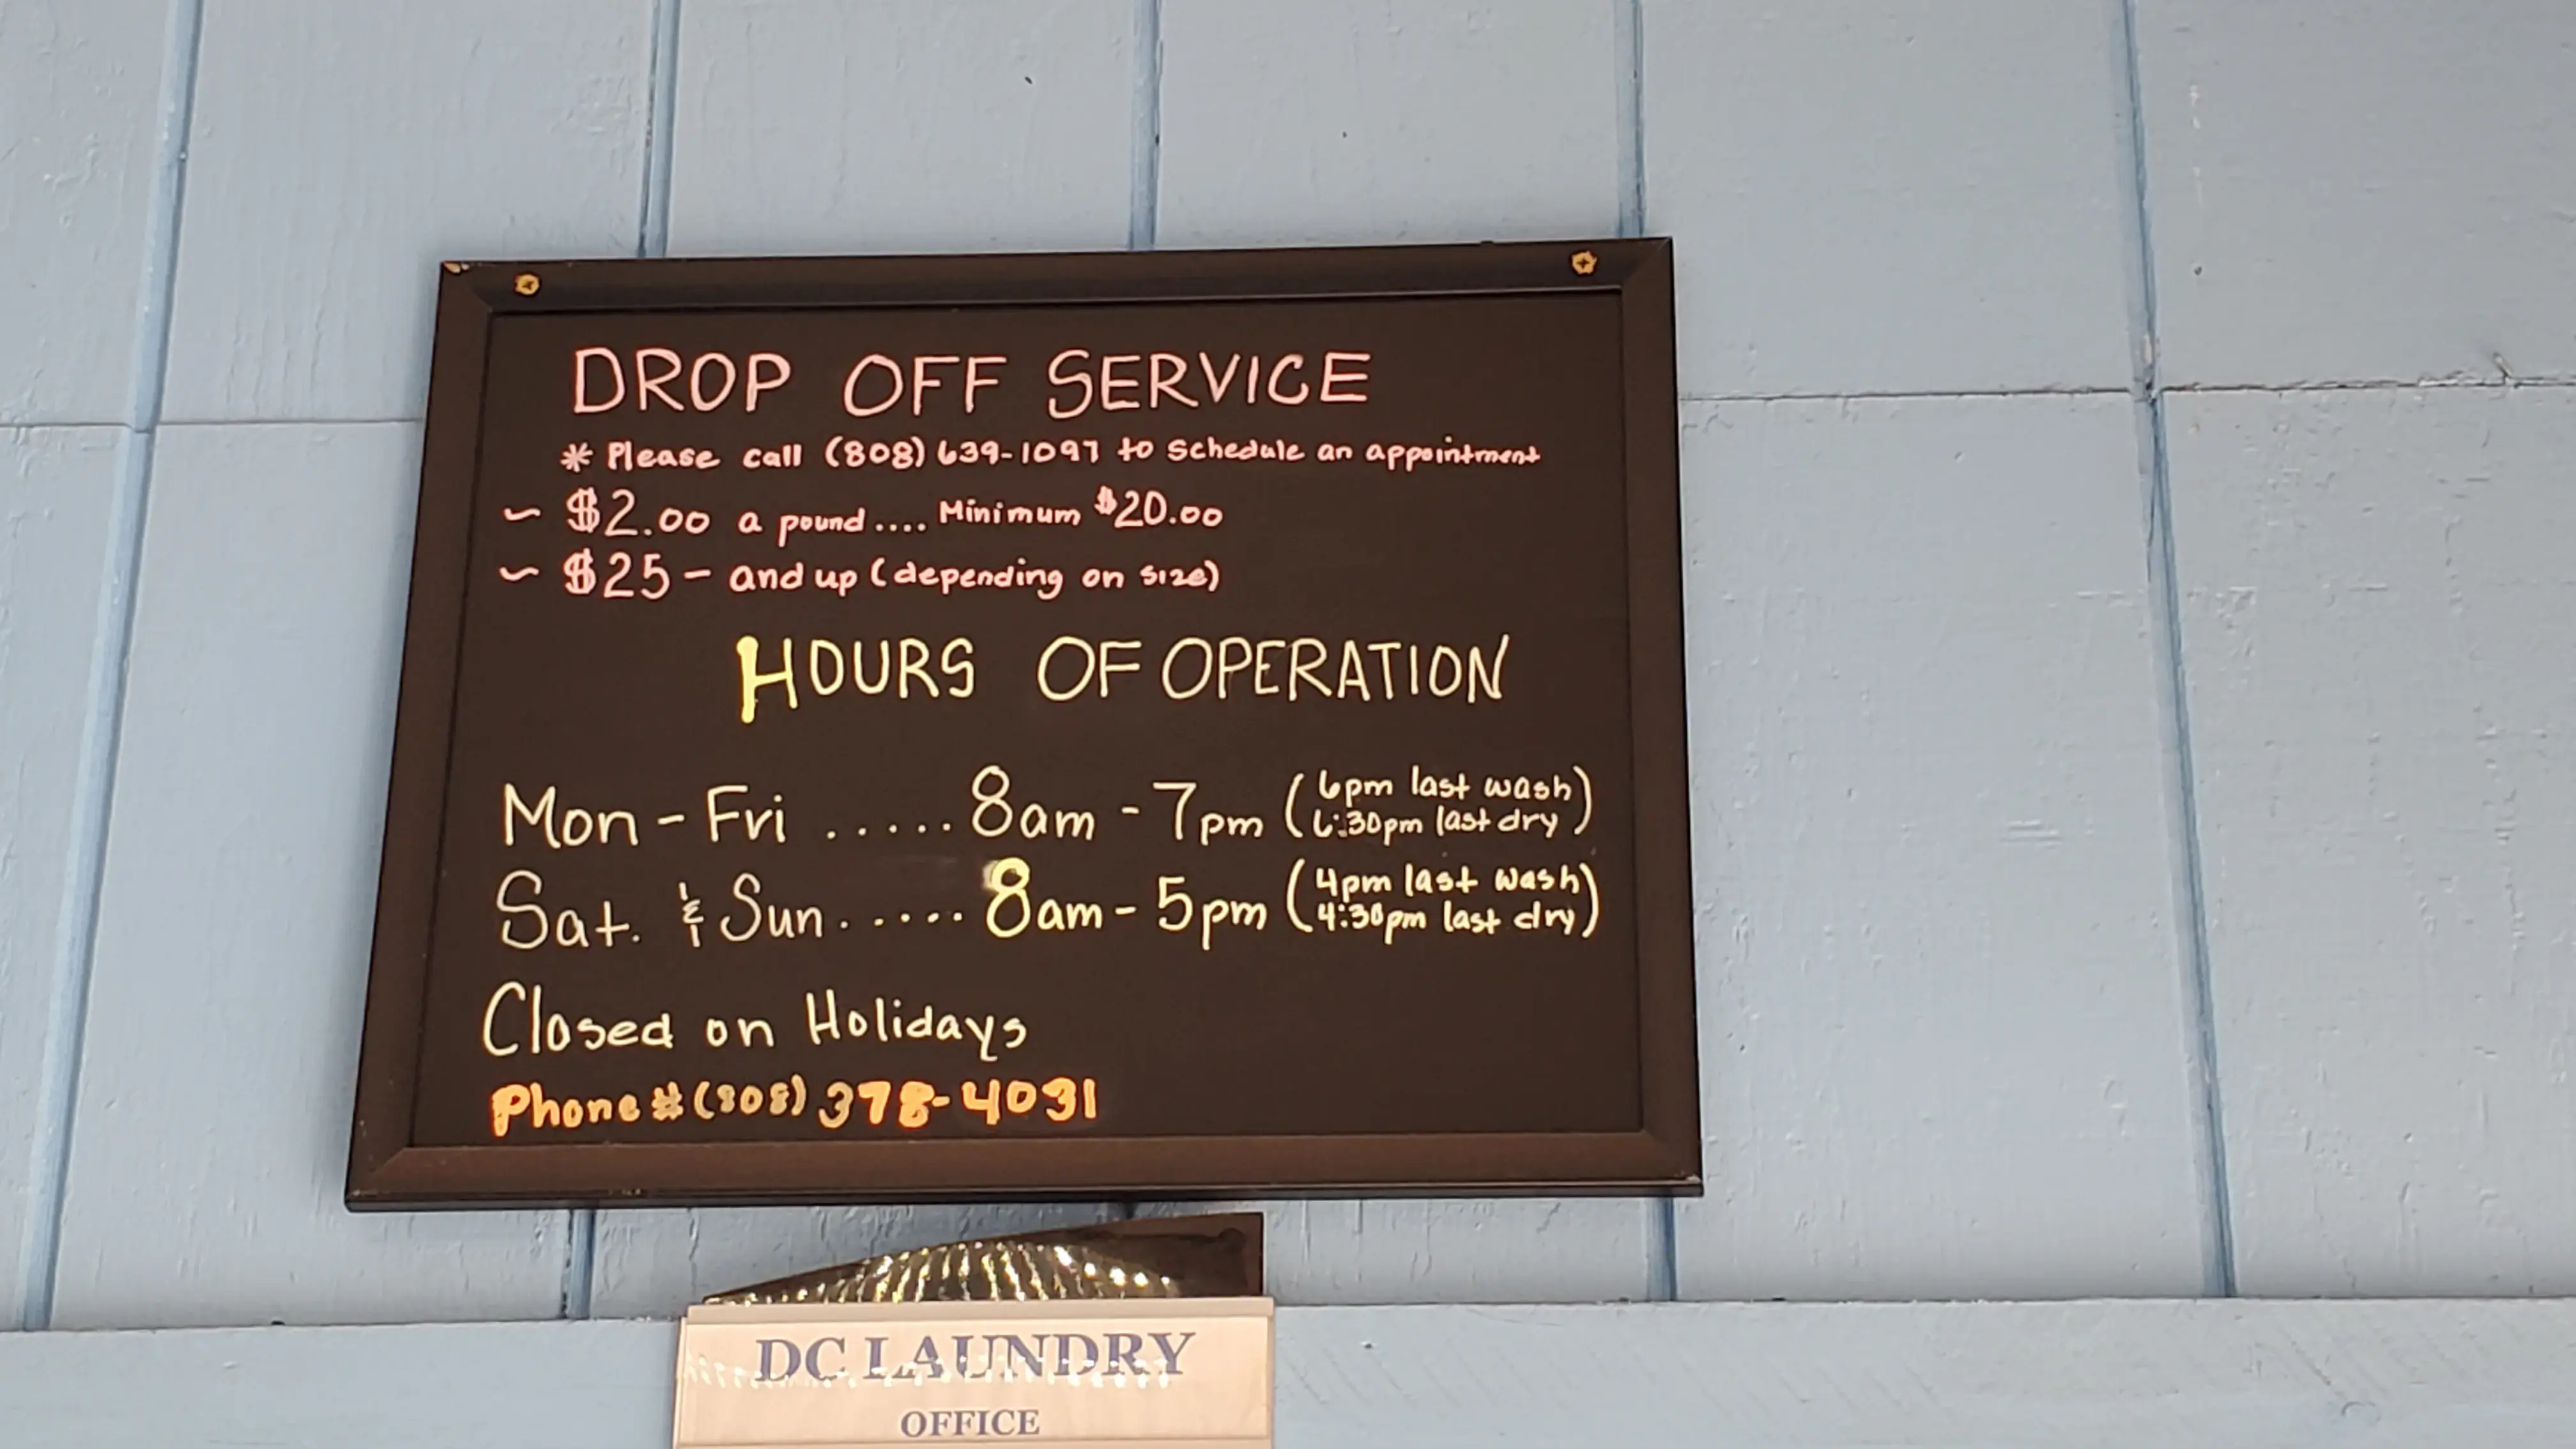 DROP OFF SERVICE
* Please call (808) 639-1097 to Schedule an appointment
~ $2.00 a pound .... Minimum $20.00
~ $25 - and up (depending on size)
HOURS OF OPERATION
Mon - Fri ..... 8am - 7pm (6pm last wash
6:30pm last dry)
Sat. & Sun ..... 8am - 5pm (4pm last wash
4:30pm last dry)
Closed on Holidays
Phone # (808) 378-4031
DC LAUNDRY
OFFICE